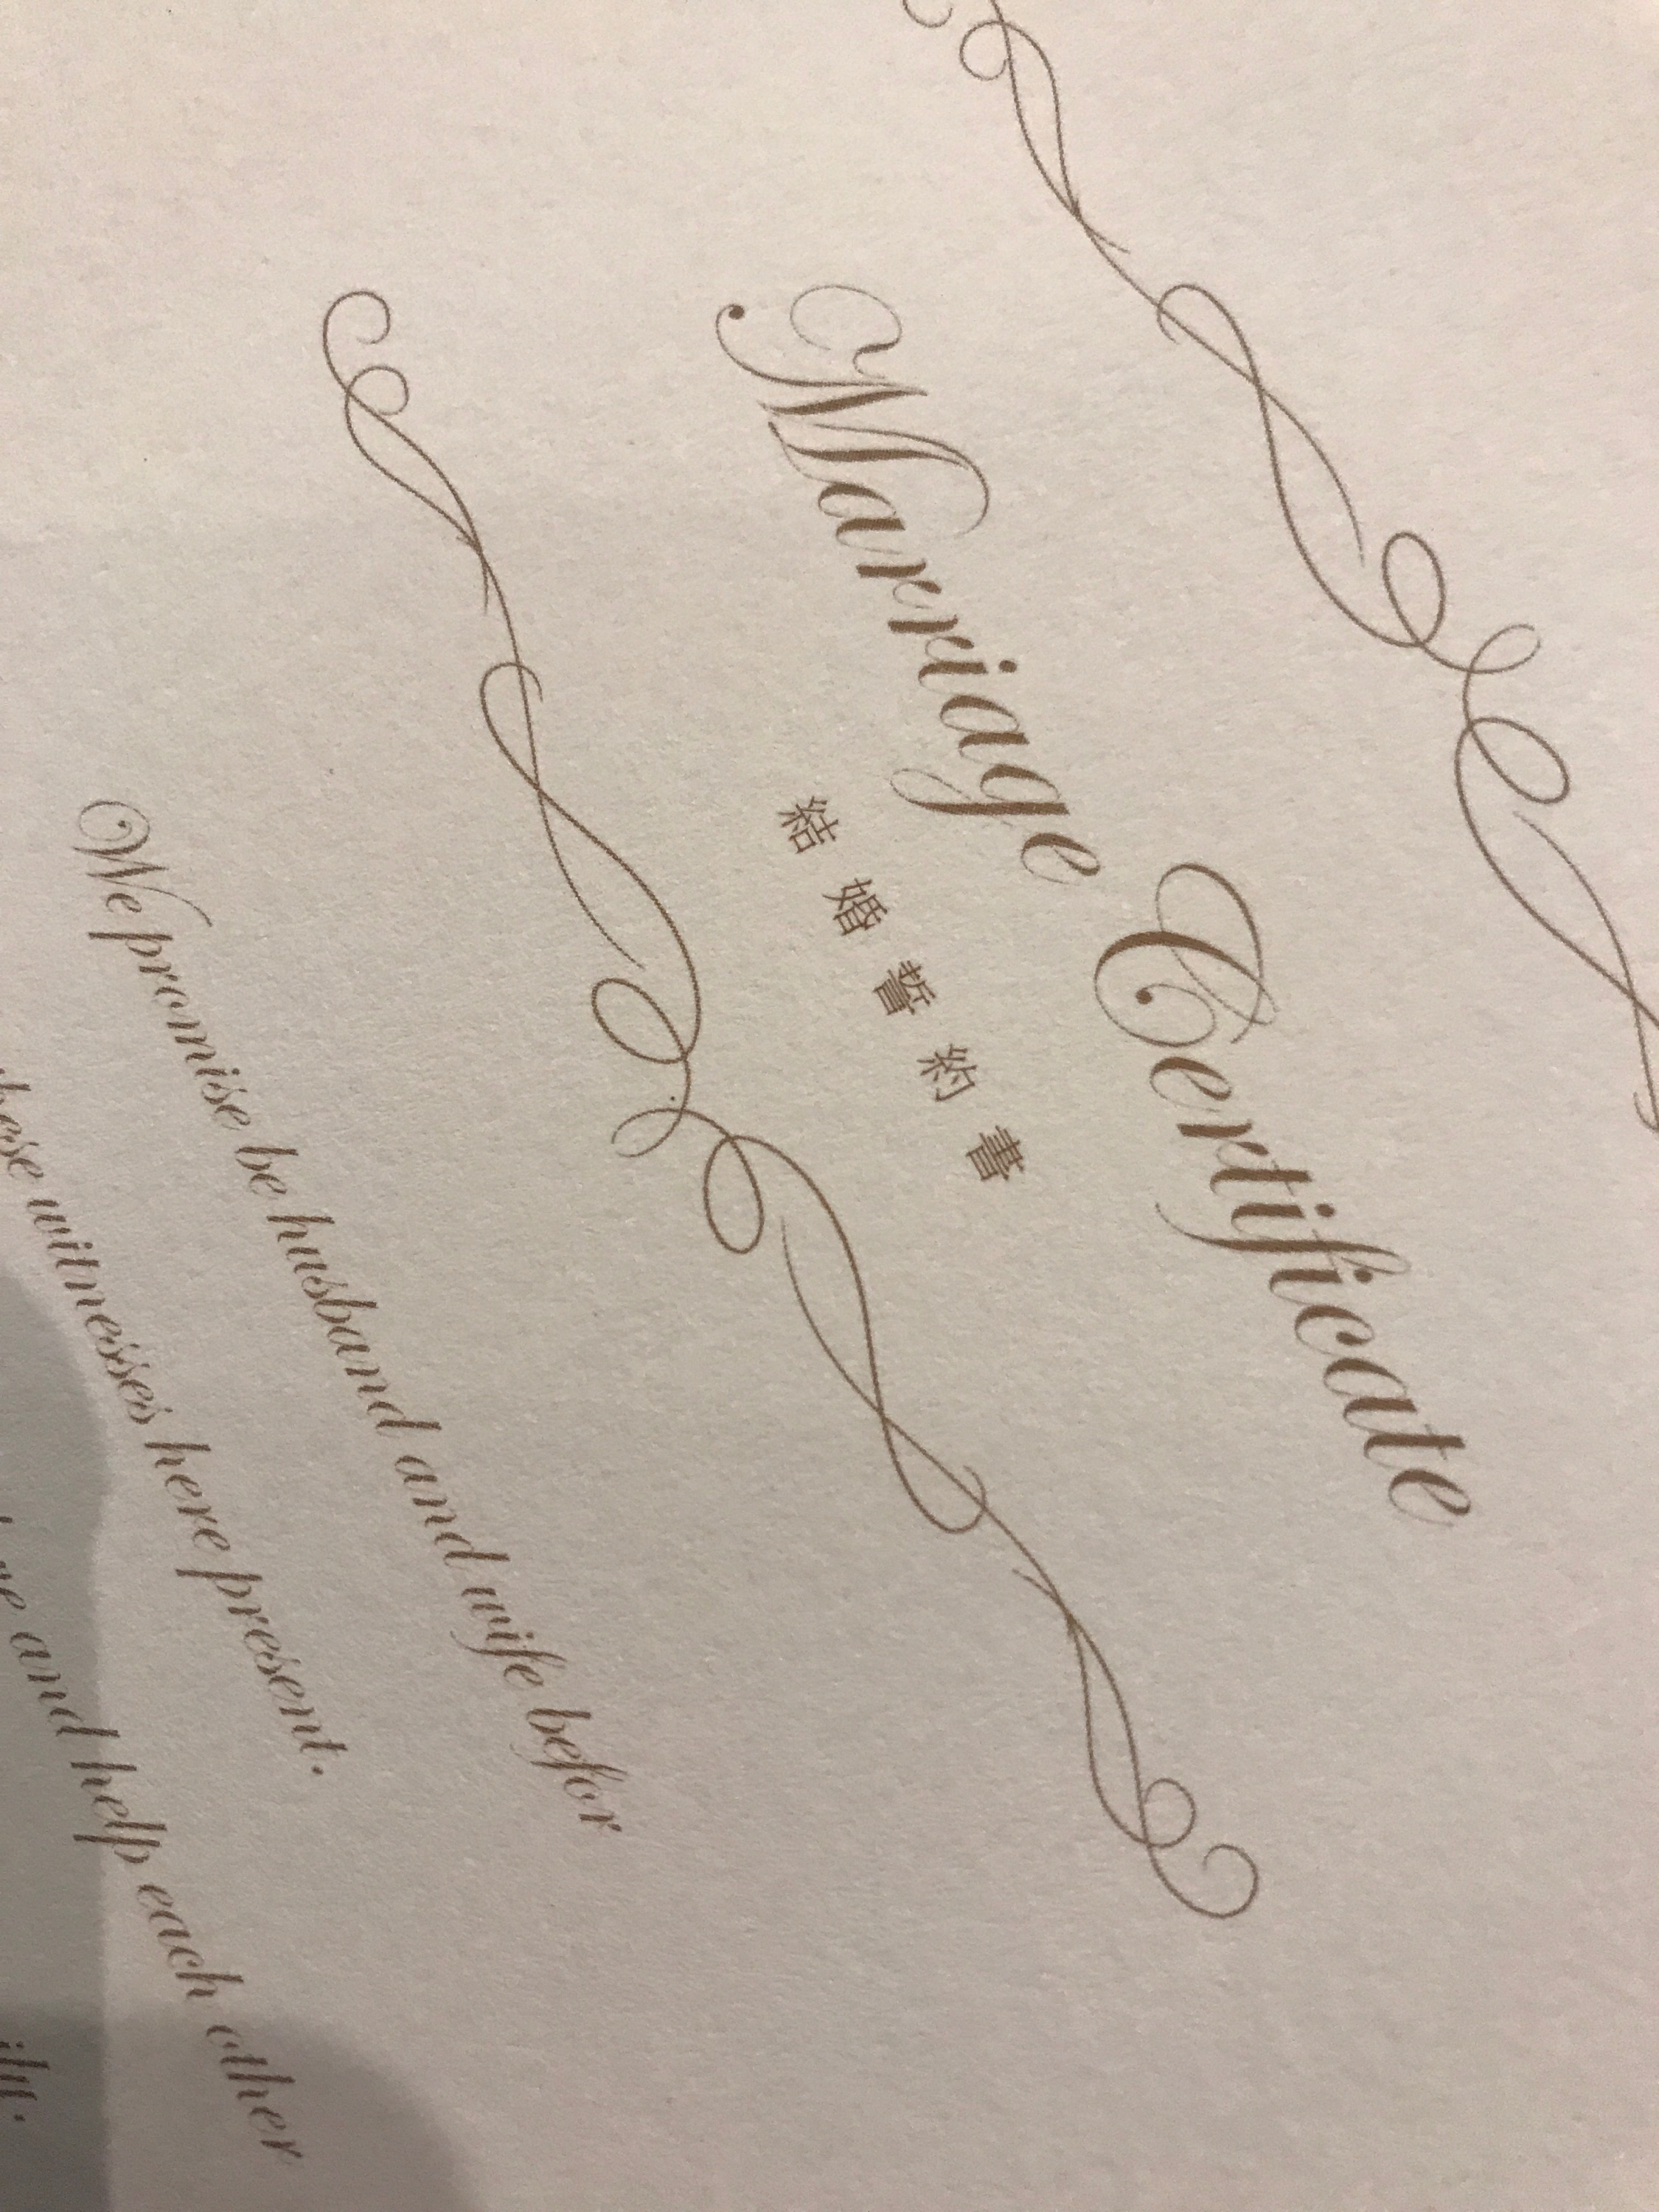 Marriage Certificate
結婚誓約書
We promise be husband and wife befor
witnesses here present.
and help each other